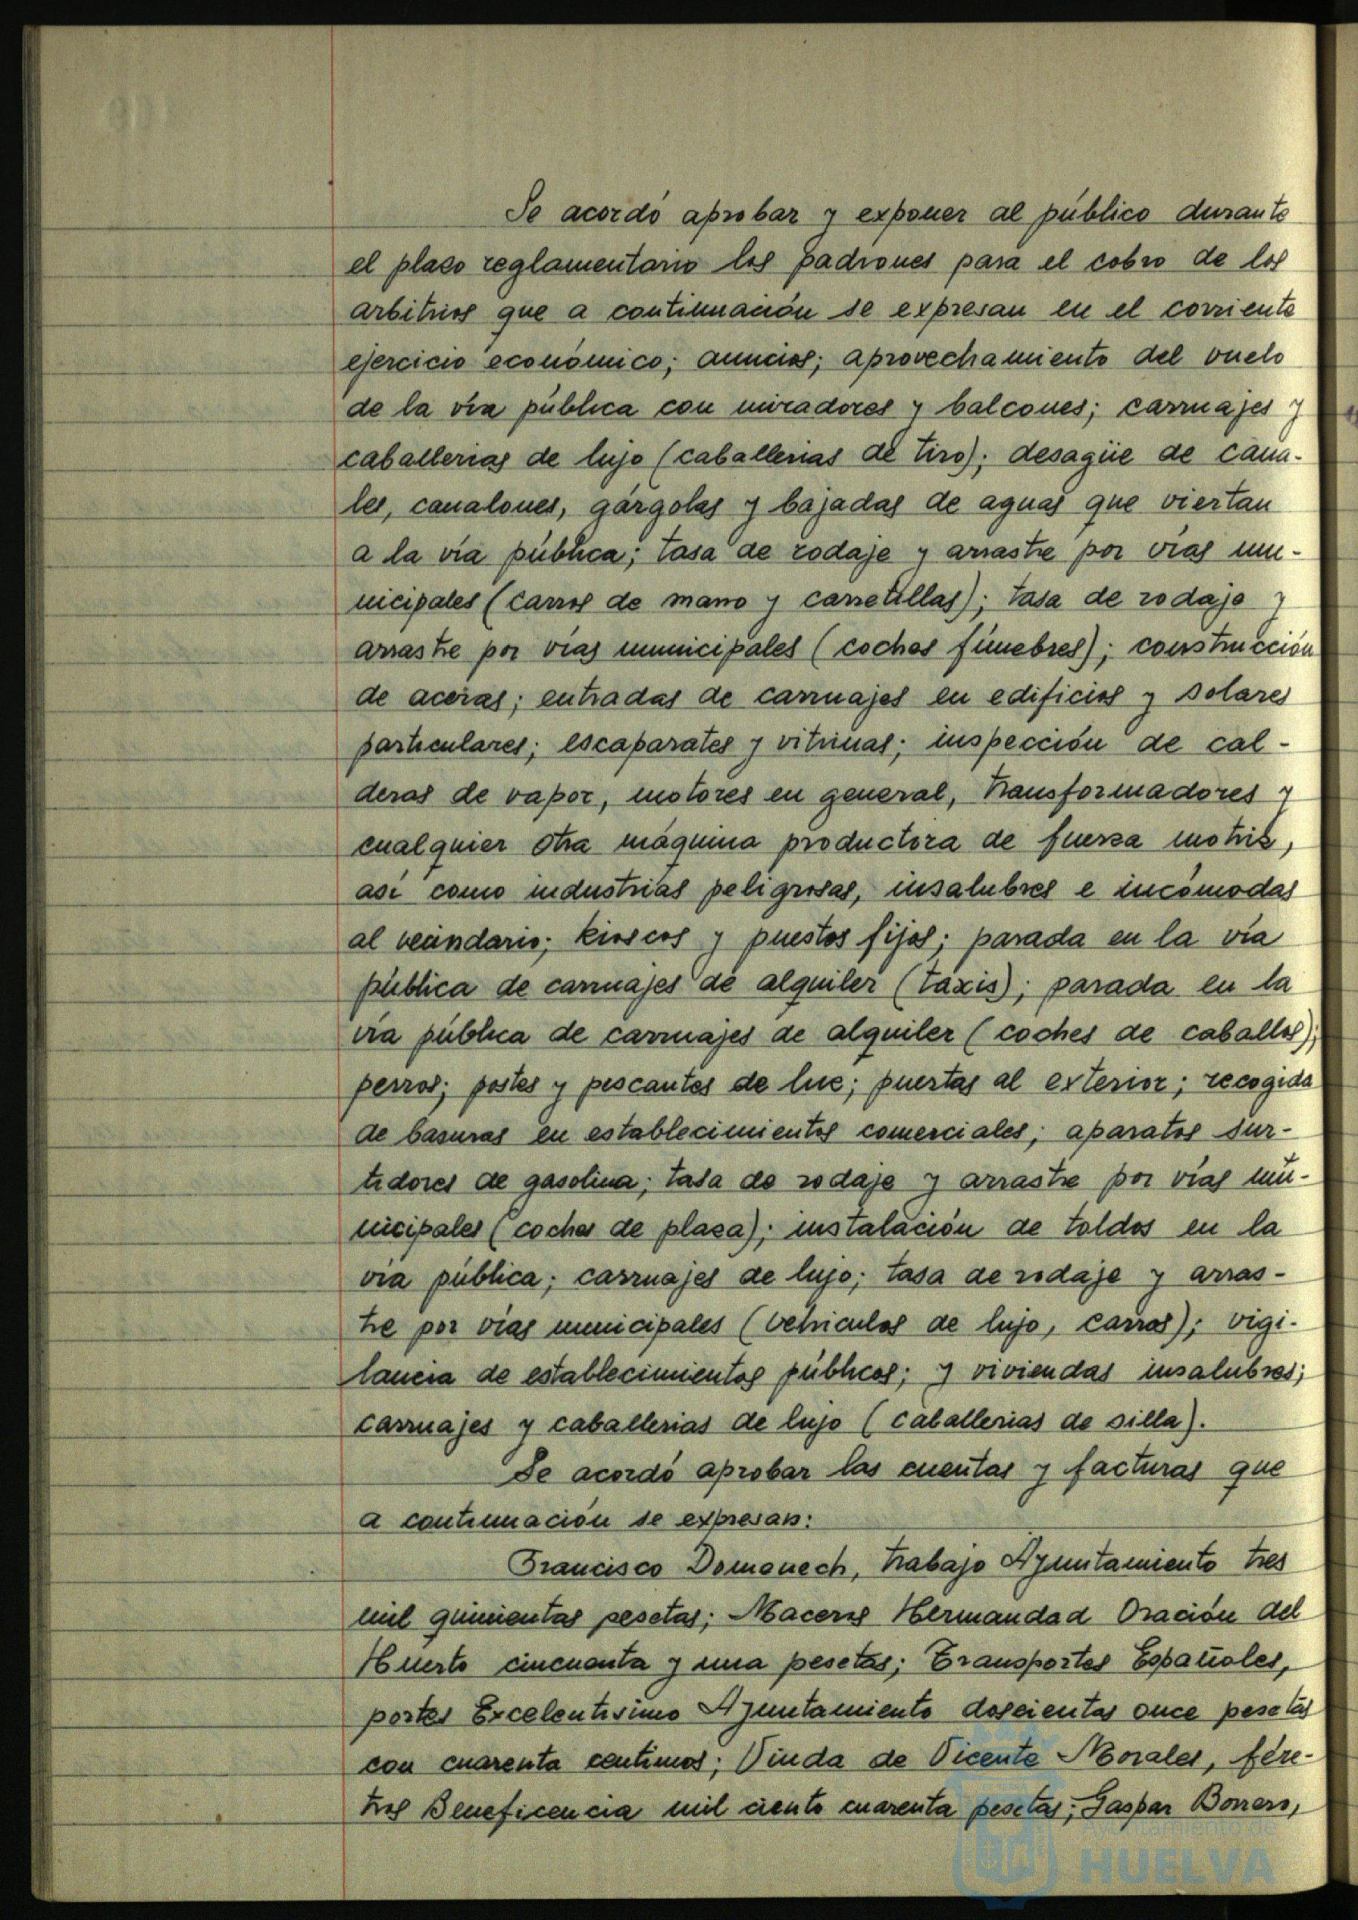 Se acordó aprobar y exponer al público durante
el plazo reglamentario los padrones para el cobro de los
arbitrios que a continuación se expresan en el corriente
ejercicio económico; anuncios; aprovechamiento del vuelo
de la vía pública con miradores y balcones; carruajes y
caballerias de lujo (caballerias de tiro); desagüe de cana-
les, canalones, gárgolas y bajadas de aguas que viertan
a la vía pública; tasa de rodaje y arrastre por vías mu-
nicipales (carros de mano y carretillas); tasa de rodaje y
arrastre por vías municipales (coches fúnebres); construcción
de aceras; entradas de carruajes en edificios y solares
particulares; escaparates y vitrinas; inspección de cal-
deras de vapor, motores en general, transformadores y
cualquier otra máquina productora de fuerza motriz,
así como industrias peligrosas, insalubres e incómodas
al vecindario; kioscos y puestos fijos; parada en la vía
pública de carruajes de alquiler (taxis); parada en la
vía pública de carruajes de alquiler (coches de caballos);
perros; postes y pescantes de luz; puertas al exterior; recogida
de basuras en establecimientos comerciales; aparatos sur-
tidores de gasolina; tasa de rodaje y arrastre por vías mu-
nicipales (coches de plaza); instalación de toldos en la
vía pública; carruajes de lujo; tasa de rodaje y arras-
tre por vías municipales (vehiculos de lujo, carros); vigi-
lancia de establecimientos públicos; y viviendas insalubres;
carruajes y caballerias de lujo (caballerias de silla).
Se acordó aprobar las cuentas y facturas que
a continuación se expresan:
Francisco Domenech, trabajo Ayuntamiento tres
mil quinientas pesetas; Maceros Hermandad Oración del
Huerto cincuenta y una pesetas; Transportes Españoles,
portes Excelentisimo Ayuntamiento doscientas once pesetas
con cuarenta centimos; Viuda de Vicente Morales, fére-
tros Beneficencia mil ciento cuarenta pesetas; Gaspar Borrero,
Ayuntamiento de
HUELVA